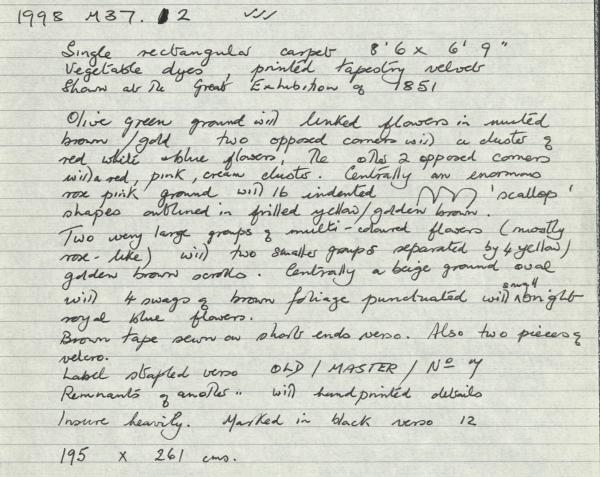 1998 M37. 2
Single rectangular carpet 8' 6 x 6' 9"
Vegetable dyes, printed tapestry velvet
Shown at the Great Exhibition of 1851
Olive green ground with linked flowers in muted
brown/gold two opposed corners with a cluster of
red, white & blue flowers, the other 2 opposed corners
with a red, pink, cream cluster. Centrally an enormous
rose pink ground with 16 indented 'scallop'
shapes outlined in frilled yellow/golden brown.
Two very large groups of multi-coloured flowers (mostly
rose-like) with two smaller groups separated by 4 yellow/
golden brown scrolls. Centrally a beige ground oval
with 4 swags of brown foliage punctuated with small bright
royal blue flowers.
Brown tape sewn on short ends verso. Also two pieces of
velcro.
Label stapled verso OLD / MASTER / No
Remnants of another " with handprinted details
Insure heavily. Marked in black verso 12
195 x 261 cms.